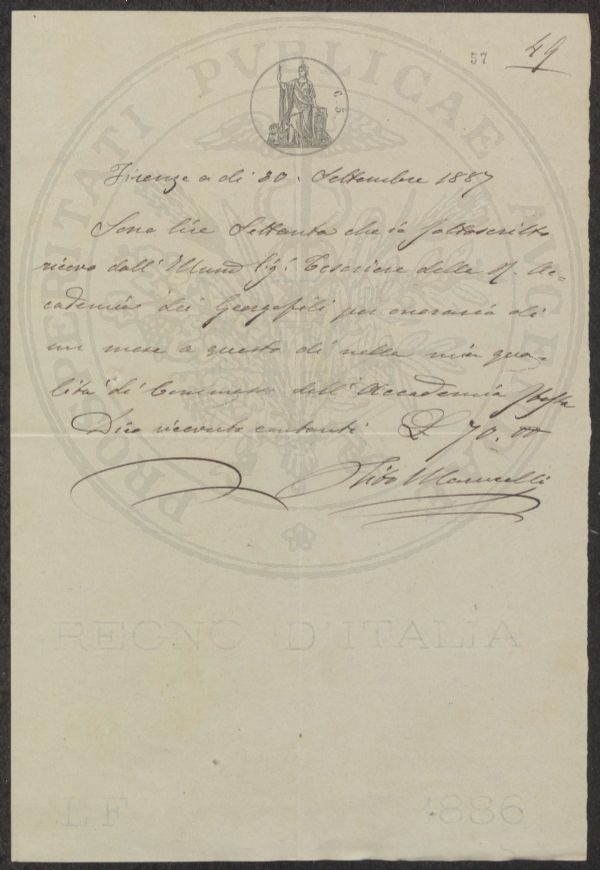 57
49
C 5
PROSPERITATI PVBLICAE AVGENDAE
Firenze a dì 30. Settembre 1887
Sono lire Settanta che io sottoscritto
ricevo dall' Illmo Sigr Tesoriere della R. Ac=
cademia dei Georgofili per onorario di
un mese a questo dì nella mia qua=
lità di Commesso dell' Accademia stessa
Dico ricevuto contanti L 70.00
REGNO D'ITALIA
L F 1886